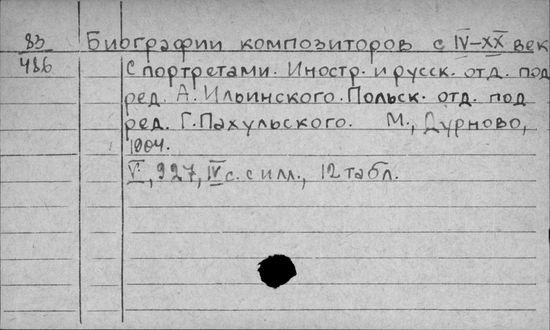 83 Биографии композиторов с IV–XX век
486 С портретами. Иностр. и русск. отд. под
ред. А. Ильинского. Польск. отд. под
ред. Г. Пахульского. М., Дурново,
1904.
V, 927, IV с. с илл., 12 табл.